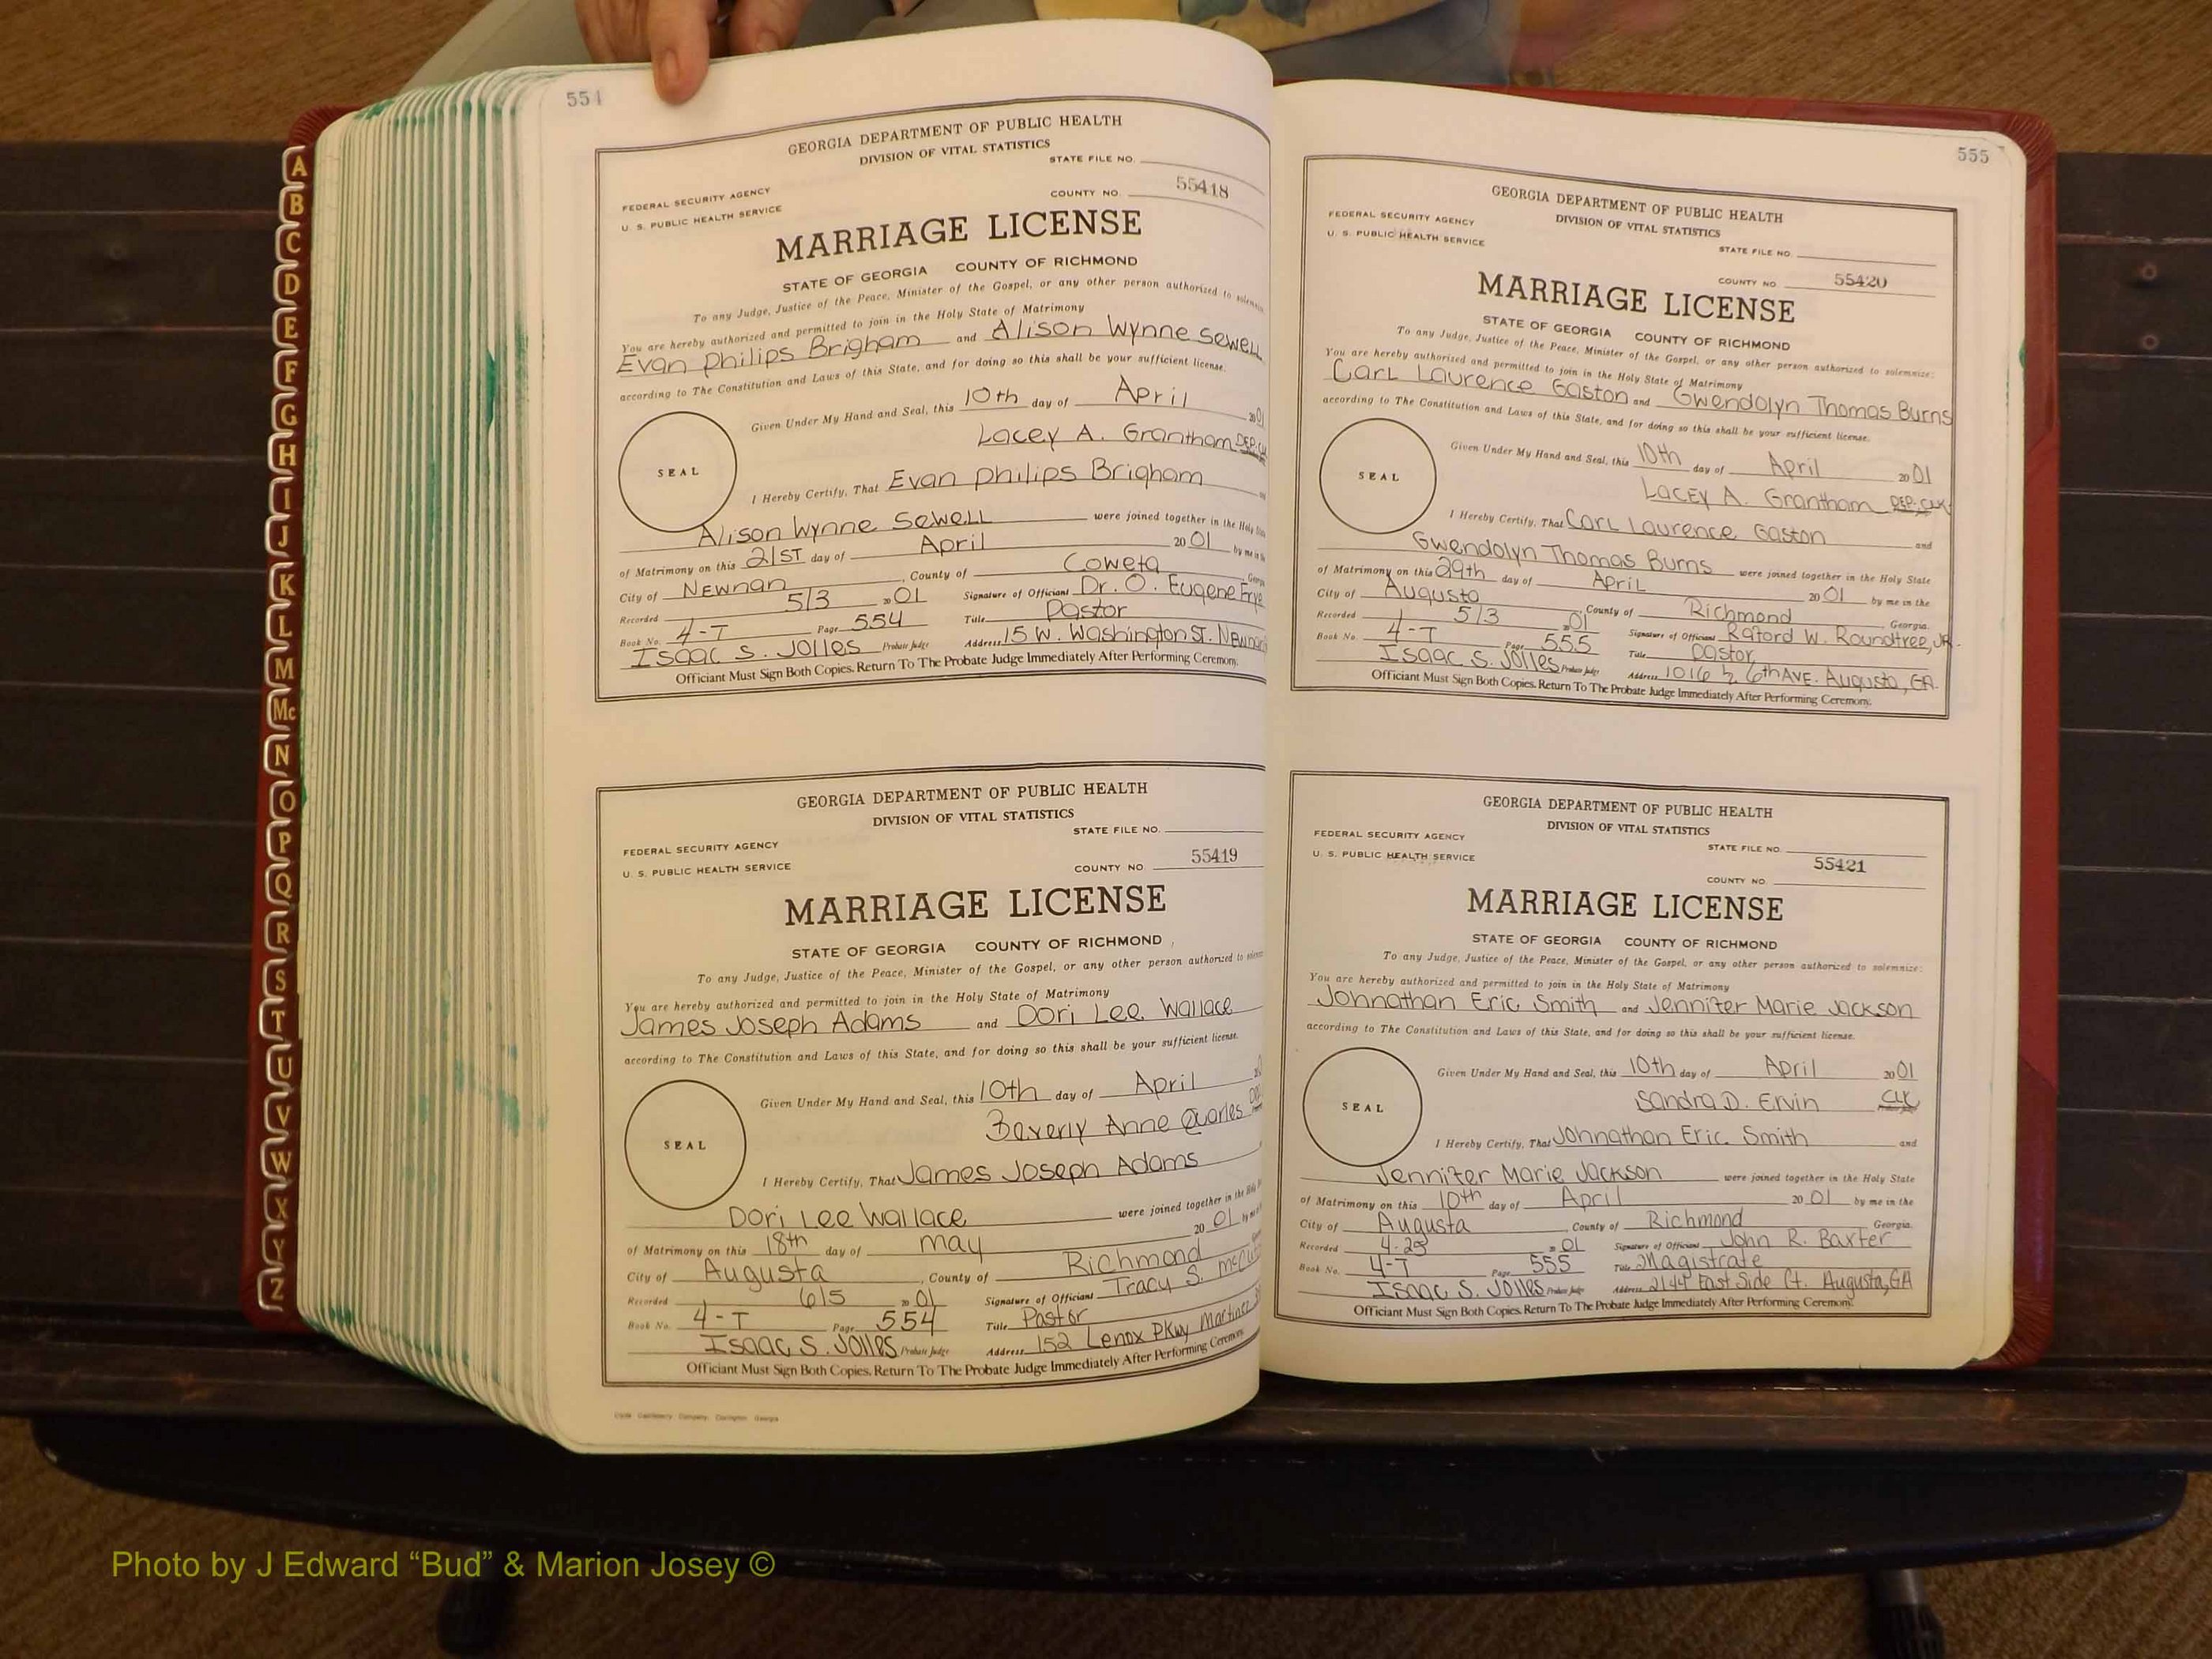 A
B
C
D
E
F
G
H
I
J
K
L
M
Mc
N
O
P
Q
R
S
T
U
V
W
X
Y
Z
554
GEORGIA DEPARTMENT OF PUBLIC HEALTH
DIVISION OF VITAL STATISTICS
STATE FILE NO.
FEDERAL SECURITY AGENCY
U. S. PUBLIC HEALTH SERVICE
COUNTY NO. 55418
MARRIAGE LICENSE
STATE OF GEORGIA COUNTY OF RICHMOND
To any Judge, Justice of the Peace, Minister of the Gospel, or any other person authorized to
You are hereby authorized and permitted to join in the Holy State of Matrimony
Evan Philips Brigham and Alison Wynne Sewell
according to The Constitution and Laws of this State, and for doing so this shall be your sufficient license.
SEAL
Given Under My Hand and Seal, this 10th day of April 2001
Lacey A. Grantham
I Hereby Certify, That Evan Philips Brigham
Alison Wynne Sewell were joined together in the Holy
of Matrimony on this 21ST day of April 2001 by me in the
City of Newnan, County of Coweta
Recorded 5/3 2001 Signature of Officiant Dr. O. Eugene Frye
Book No. 4-T Page 554 Title Pastor
Isaac S. Jolles Probate Judge Address 15 W. Washington St. Newnan
Officiant Must Sign Both Copies. Return To The Probate Judge Immediately After Performing Ceremony.
GEORGIA DEPARTMENT OF PUBLIC HEALTH
DIVISION OF VITAL STATISTICS
STATE FILE NO.
FEDERAL SECURITY AGENCY
U. S. PUBLIC HEALTH SERVICE
COUNTY NO. 55419
MARRIAGE LICENSE
STATE OF GEORGIA COUNTY OF RICHMOND
To any Judge, Justice of the Peace, Minister of the Gospel, or any other person authorized to
You are hereby authorized and permitted to join in the Holy State of Matrimony
James Joseph Adams and Dori Lee Wallace
according to The Constitution and Laws of this State, and for doing so this shall be your sufficient license.
SEAL
Given Under My Hand and Seal, this 10th day of April
Beverly Anne Quarles
I Hereby Certify, That James Joseph Adams
Dori Lee Wallace were joined together in the
of Matrimony on this 18th day of May 2001
City of Augusta, County of Richmond
Recorded 6/5 2001 Signature of Officiant Tracy S.
Book No. 4-T Page 554 Title Pastor
Isaac S. Jolles Probate Judge Address 152 Lenox Pkwy Martinez
Officiant Must Sign Both Copies. Return To The Probate Judge Immediately After Performing Ceremony.
555
GEORGIA DEPARTMENT OF PUBLIC HEALTH
DIVISION OF VITAL STATISTICS
FEDERAL SECURITY AGENCY
U. S. PUBLIC HEALTH SERVICE
STATE FILE NO.
COUNTY NO. 55420
MARRIAGE LICENSE
STATE OF GEORGIA COUNTY OF RICHMOND
To any Judge, Justice of the Peace, Minister of the Gospel, or any other person authorized to solemnize:
You are hereby authorized and permitted to join in the Holy State of Matrimony
Carl Laurence Gaston and Gwendolyn Thomas Burns
according to The Constitution and Laws of this State, and for doing so this shall be your sufficient license.
SEAL
Given Under My Hand and Seal, this 10th day of April 2001
Lacey A. Grantham DEP. CLK
I Hereby Certify, That Carl Laurence Gaston and
Gwendolyn Thomas Burns were joined together in the Holy State
of Matrimony on this 29th day of April 2001 by me in the
City of Augusta, County of Richmond, Georgia.
Recorded 5/3 2001 Signature of Officiant Raford W. Roundtree, JR.
Book No. 4-T Page 555 Title Pastor
Isaac S. Jolles Probate Judge Address 1016 ½ 6th AVE. Augusta, GA.
Officiant Must Sign Both Copies. Return To The Probate Judge Immediately After Performing Ceremony.
GEORGIA DEPARTMENT OF PUBLIC HEALTH
DIVISION OF VITAL STATISTICS
FEDERAL SECURITY AGENCY
U. S. PUBLIC HEALTH SERVICE
STATE FILE NO.
55421
COUNTY NO.
MARRIAGE LICENSE
STATE OF GEORGIA COUNTY OF RICHMOND
To any Judge, Justice of the Peace, Minister of the Gospel, or any other person authorized to solemnize:
You are hereby authorized and permitted to join in the Holy State of Matrimony
Johnathan Eric Smith and Jennifer Marie Jackson
according to The Constitution and Laws of this State, and for doing so this shall be your sufficient license.
SEAL
Given Under My Hand and Seal, this 10th day of April 2001
Sandra D. Ervin CLK
I Hereby Certify, That Johnathan Eric Smith and
Jennifer Marie Jackson were joined together in the Holy State
of Matrimony on this 10th day of April 2001 by me in the
City of Augusta County of Richmond Georgia.
Recorded 4-25 2001 Signature of Officiant John R. Baxter
Book No. 4-T Page 555 Title Magistrate
Isaac S. Jolles Probate Judge Address 2144 East Side Ct. Augusta, GA
Officiant Must Sign Both Copies. Return To The Probate Judge Immediately After Performing Ceremony.
Photo by J Edward “Bud” & Marion Josey ©